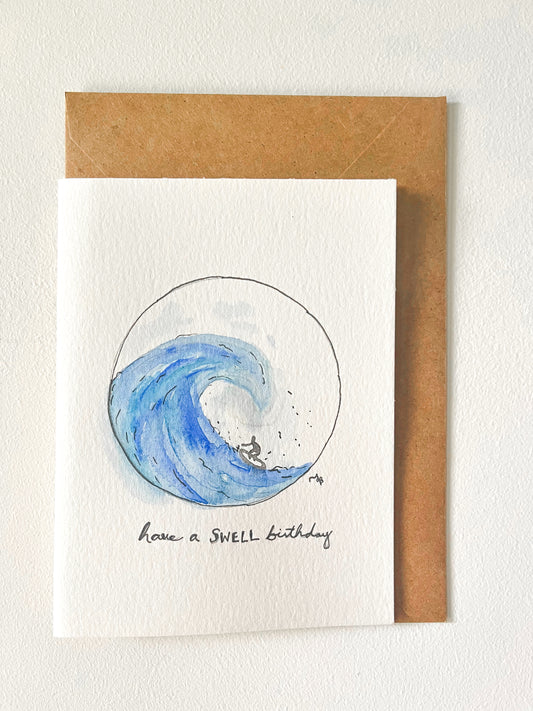 have a SWELL birthday